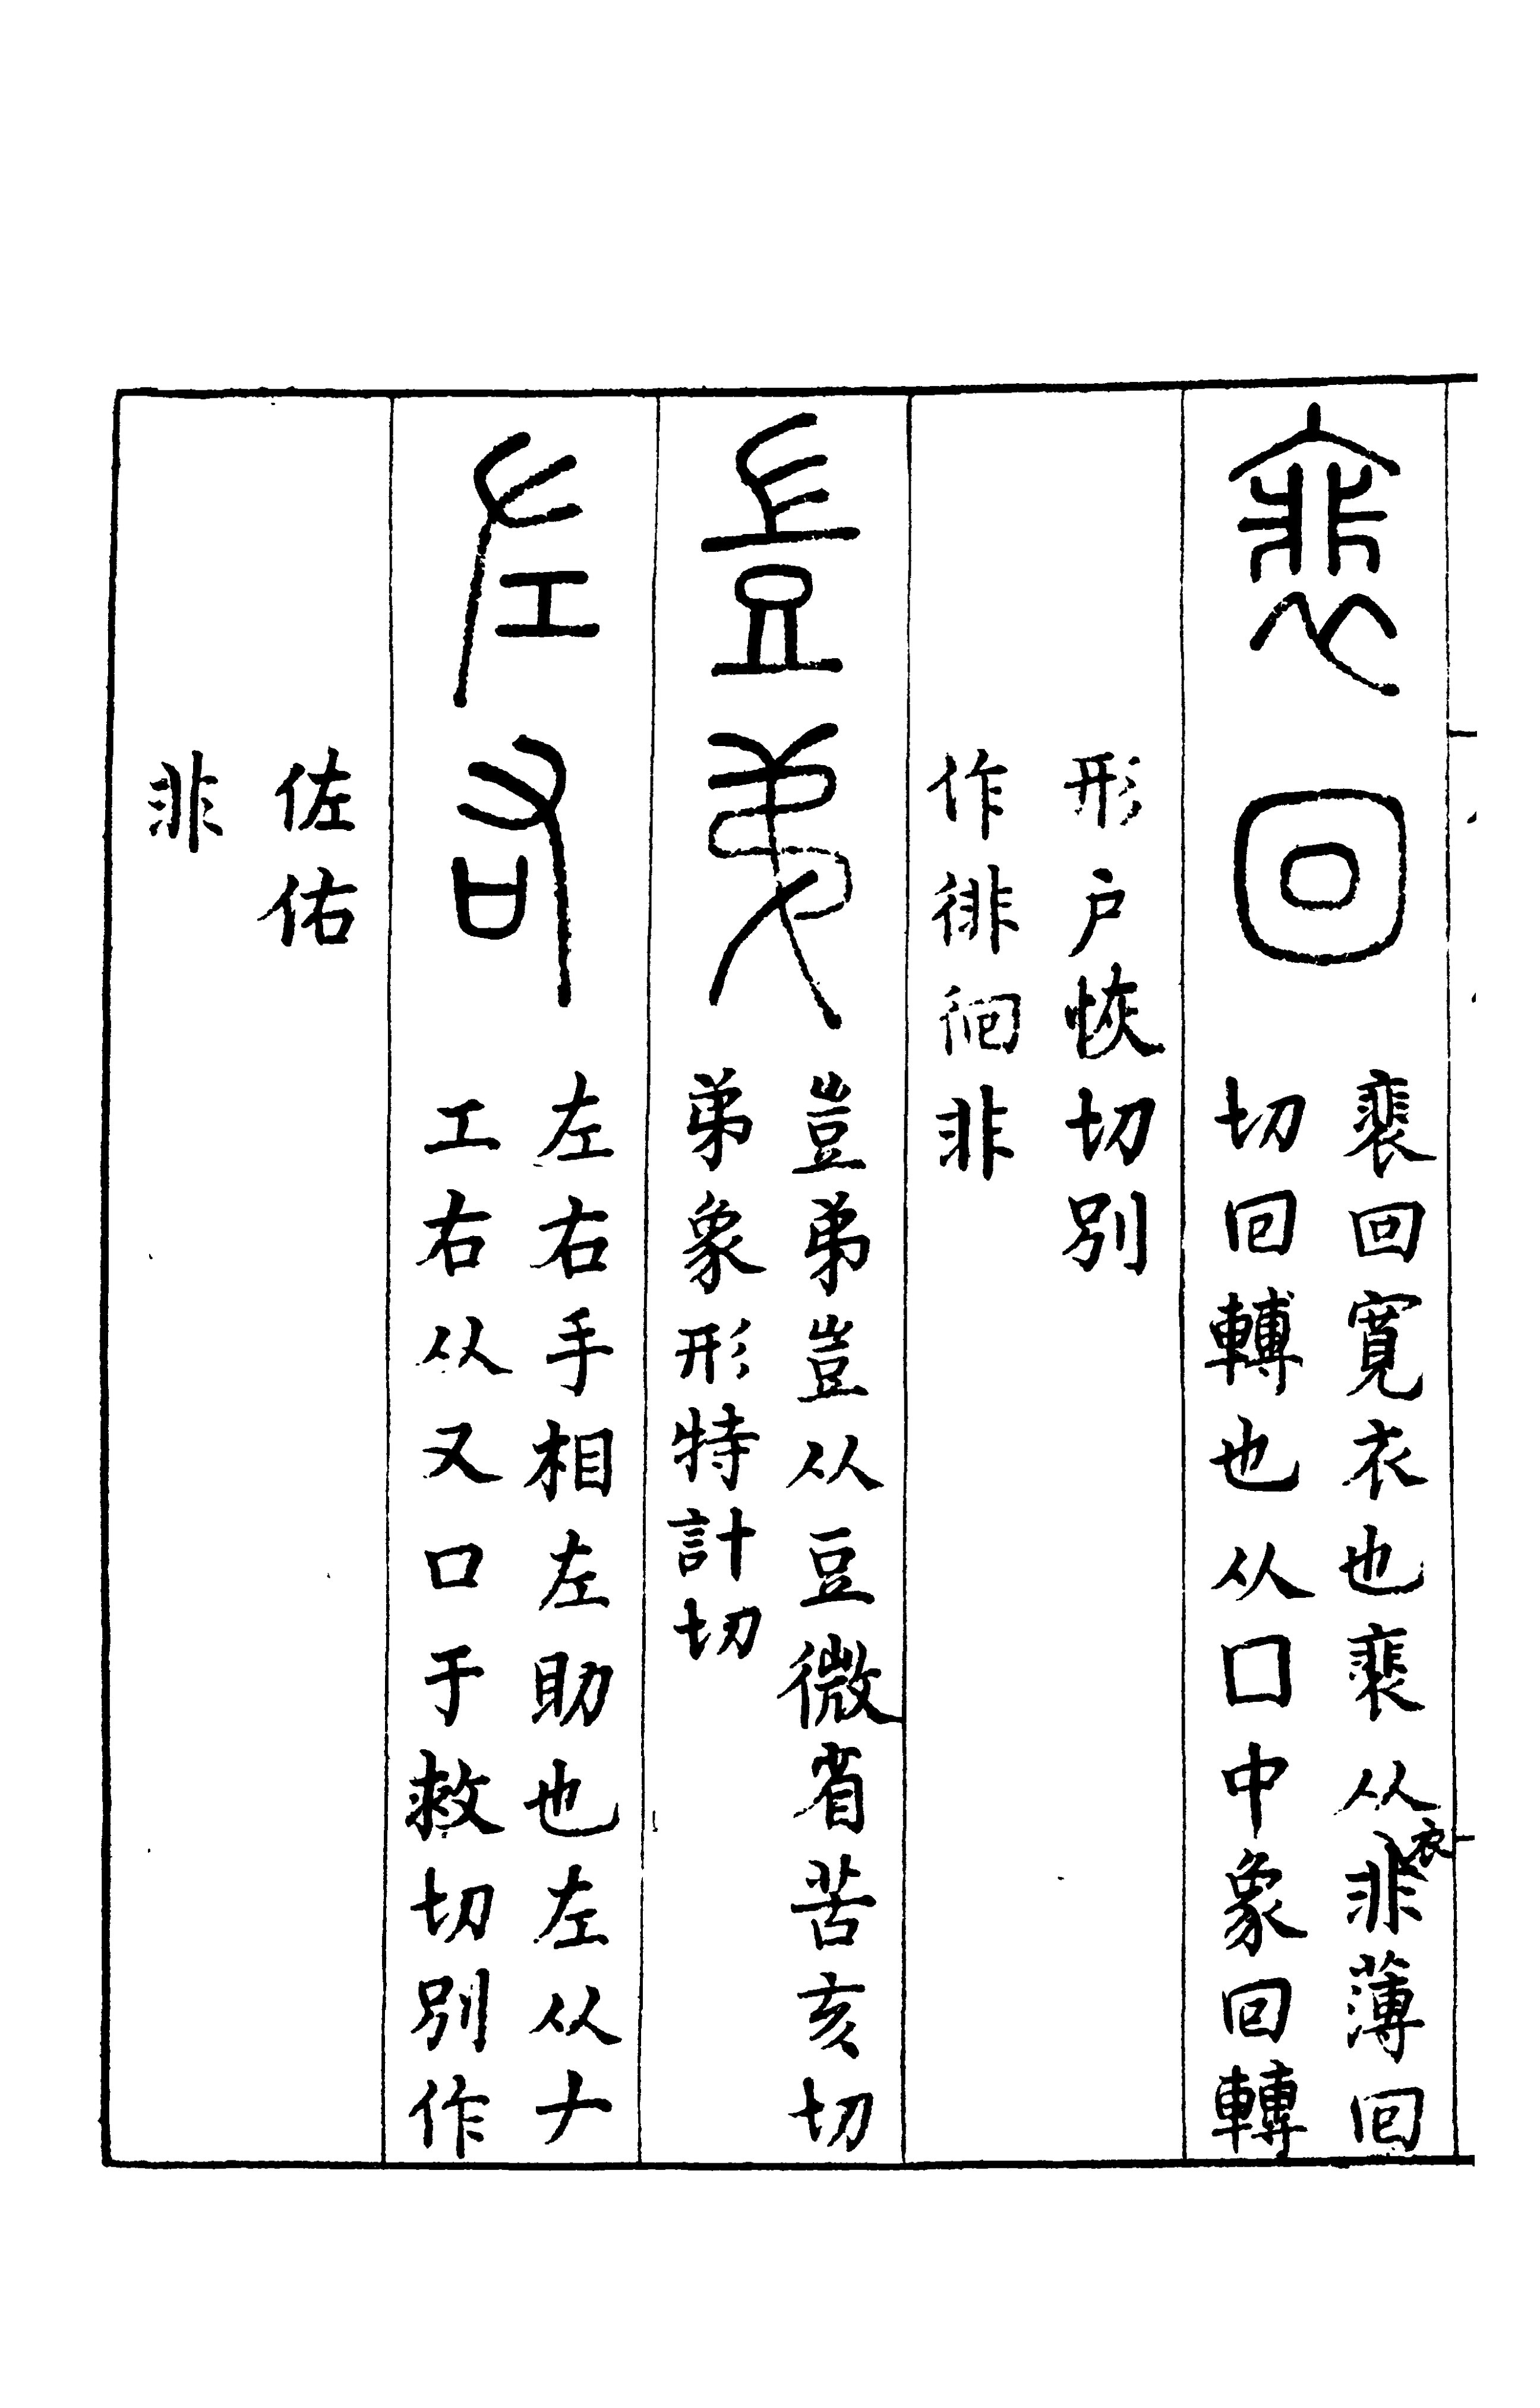 裵回
裵回寬衣也裵从衣非薄回
切回轉也从囗中象回轉
形户恢切別
作徘徊非
豈弟
豈弟豈从豆微省苦亥切
弟象形特計切
左右
左右手相左助也左从𠂇
工右从又口于救切別作
佐佑
非